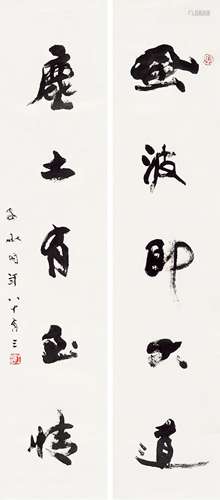 風波即大道
塵土有至情
年八十有三